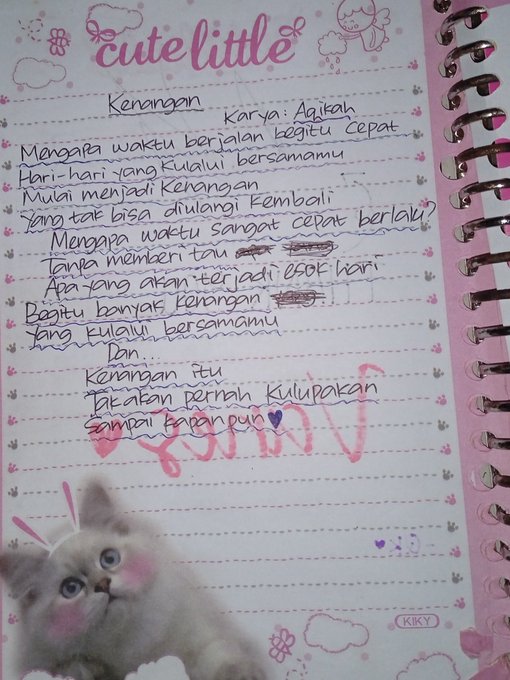 cute little
Kenangan
Karya: Aqikah
Mengapa waktu berjalan begitu cepat
Hari-hari yang kulalui bersamamu
Mulai menjadi kenangan
Yang tak bisa diulangi kembali
Mengapa waktu sangat cepat berlalu?
Tanpa memberi tau
Apa yang akan terjadi esok hari
Begitu banyak kenangan
Yang kulalui bersamamu
Dan...
Kenangan itu
Takakan pernah kulupakan
Sampai kapanpun
KIKY
cute little